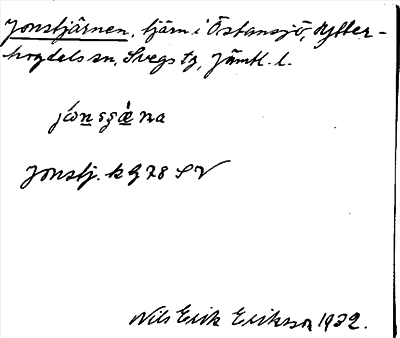 Jonstjärnen, tjärn i Östansjö, Ytter-
hogdels sn, Svegs tg, Jämtl. l.
Jonstj. k G 28 SV
Nils Erik Eriksson 1932.